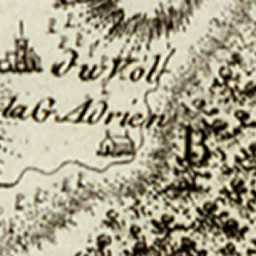 du Vol
la G. Adrien
B